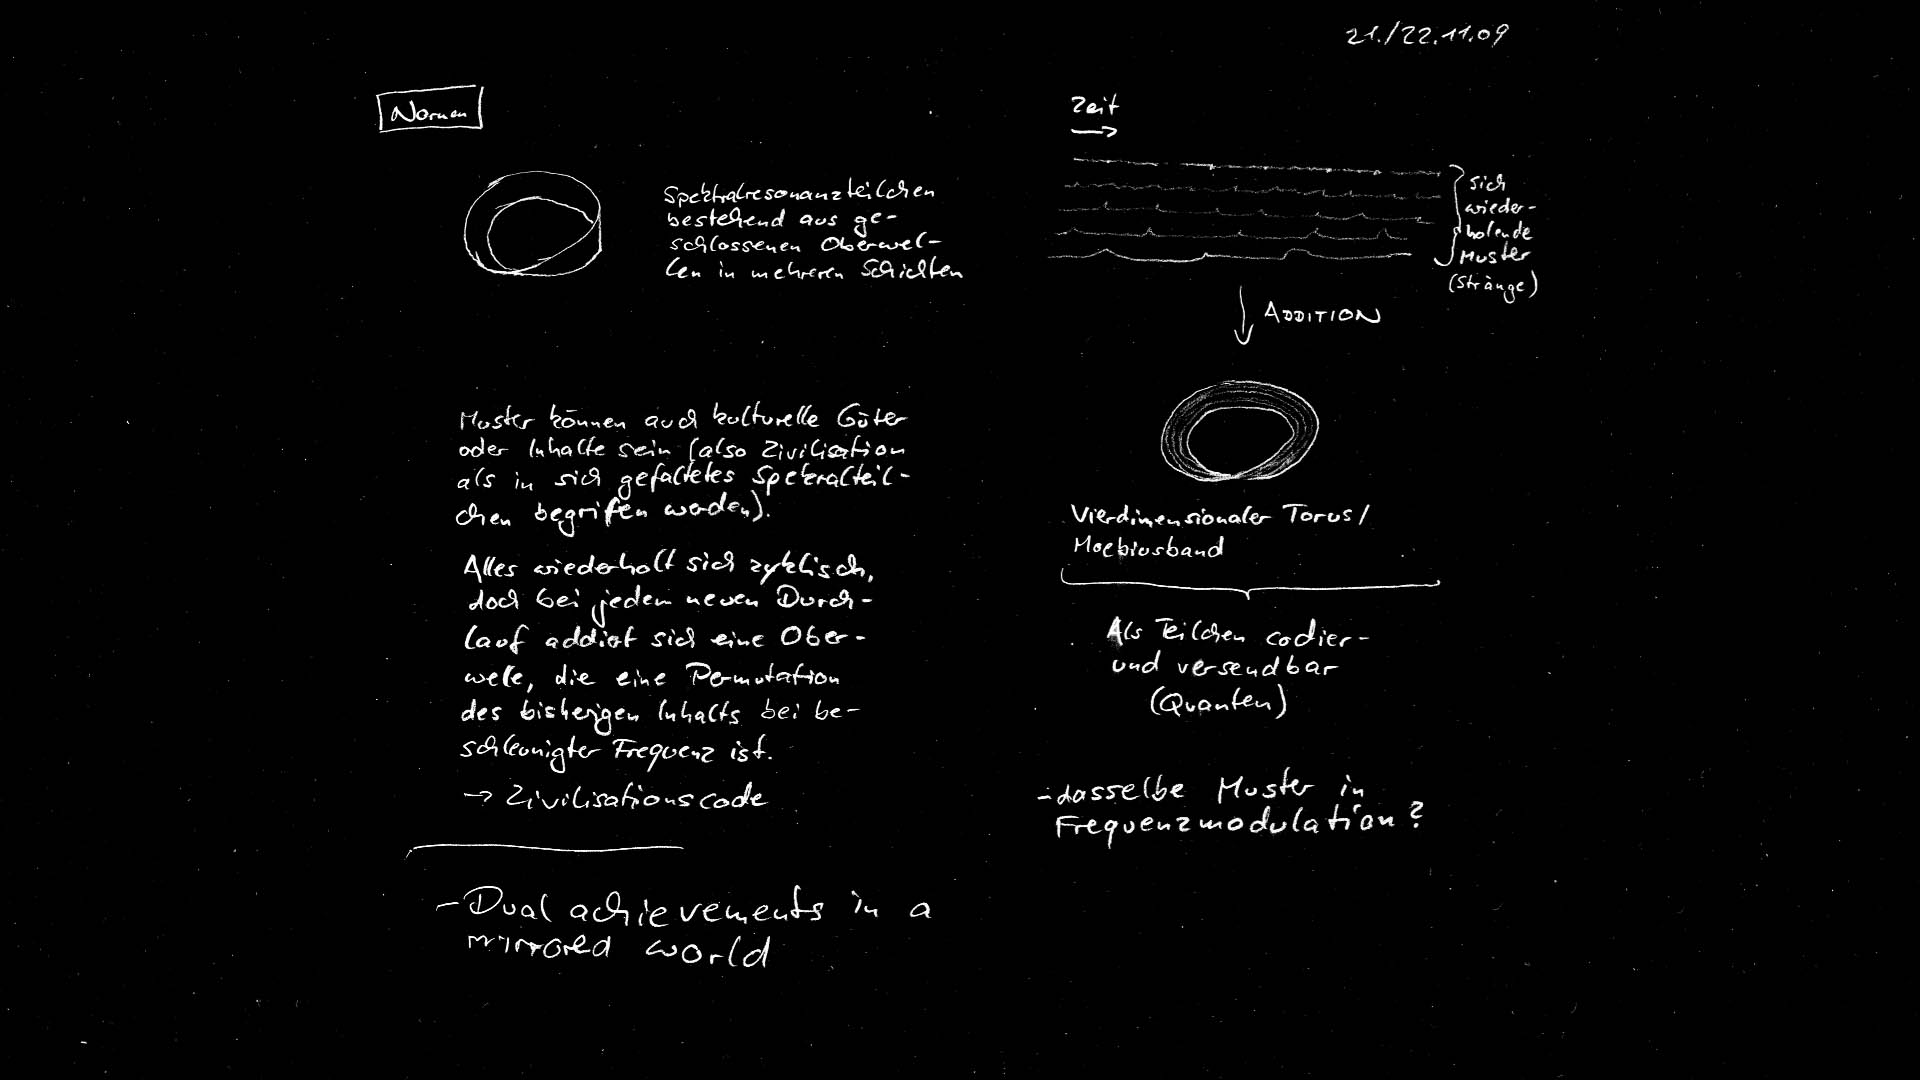 21./22.11.09
Nornen
Spektralresonanzteilchen
bestehend aus ge-
schlossenen Oberwel-
len in mehreren Schichten
Muster können auch kulturelle Güter
oder Inhalte sein (also Zivilisation
als in sich gefaltetes Spektralteil-
chen begriffen werden).
Alles wiederholt sich zyklisch,
doch bei jedem neuen Durch-
lauf addiert sich eine Ober-
welle, die eine Permutation
des bisherigen Inhalts bei be-
schleunigter Frequenz ist.
→ Zivilisationscode
- Dual achievements in a
mirrored world
Zeit
→
sich
wieder-
holende
Muster
(Stränge)
↓ ADDITION
Vierdimensionaler Torus/
Moebiusband
Als Teilchen codier-
und versendbar
(Quanten)
- dasselbe Muster in
Frequenzmodulation?